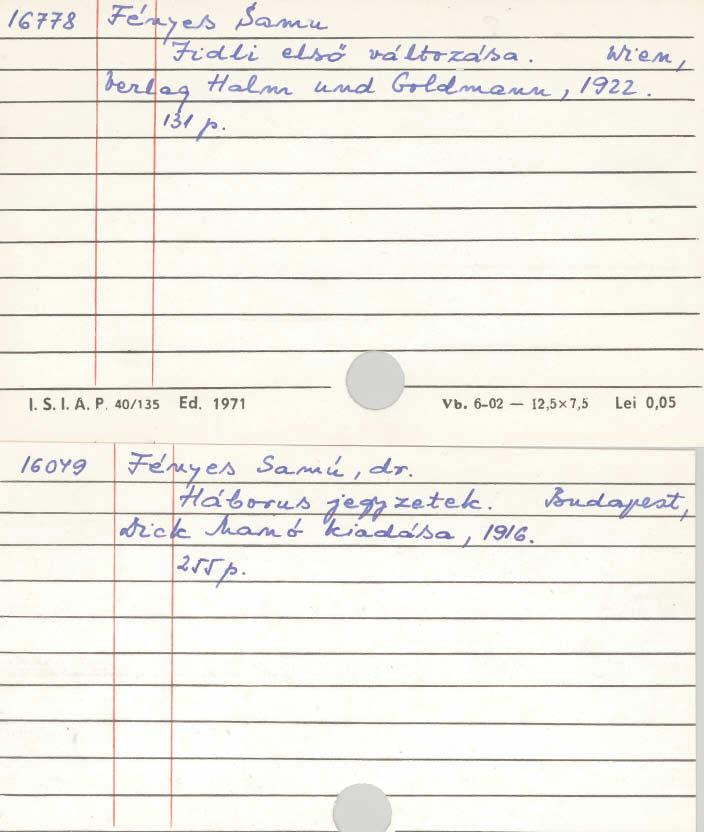 16778 Fényes Samu
Jidli első változása. Wien,
Verlag Halm und Goldmann, 1922.
131 p.
I. S. I. A. P. 40/135 Ed. 1971 Vb. 6-02 — 12,5×7,5 Lei 0,05
16049 Fényes Samú, dr.
Háborus jegyzetek. Budapest,
Dick Manó kiadása, 1916.
255 p.